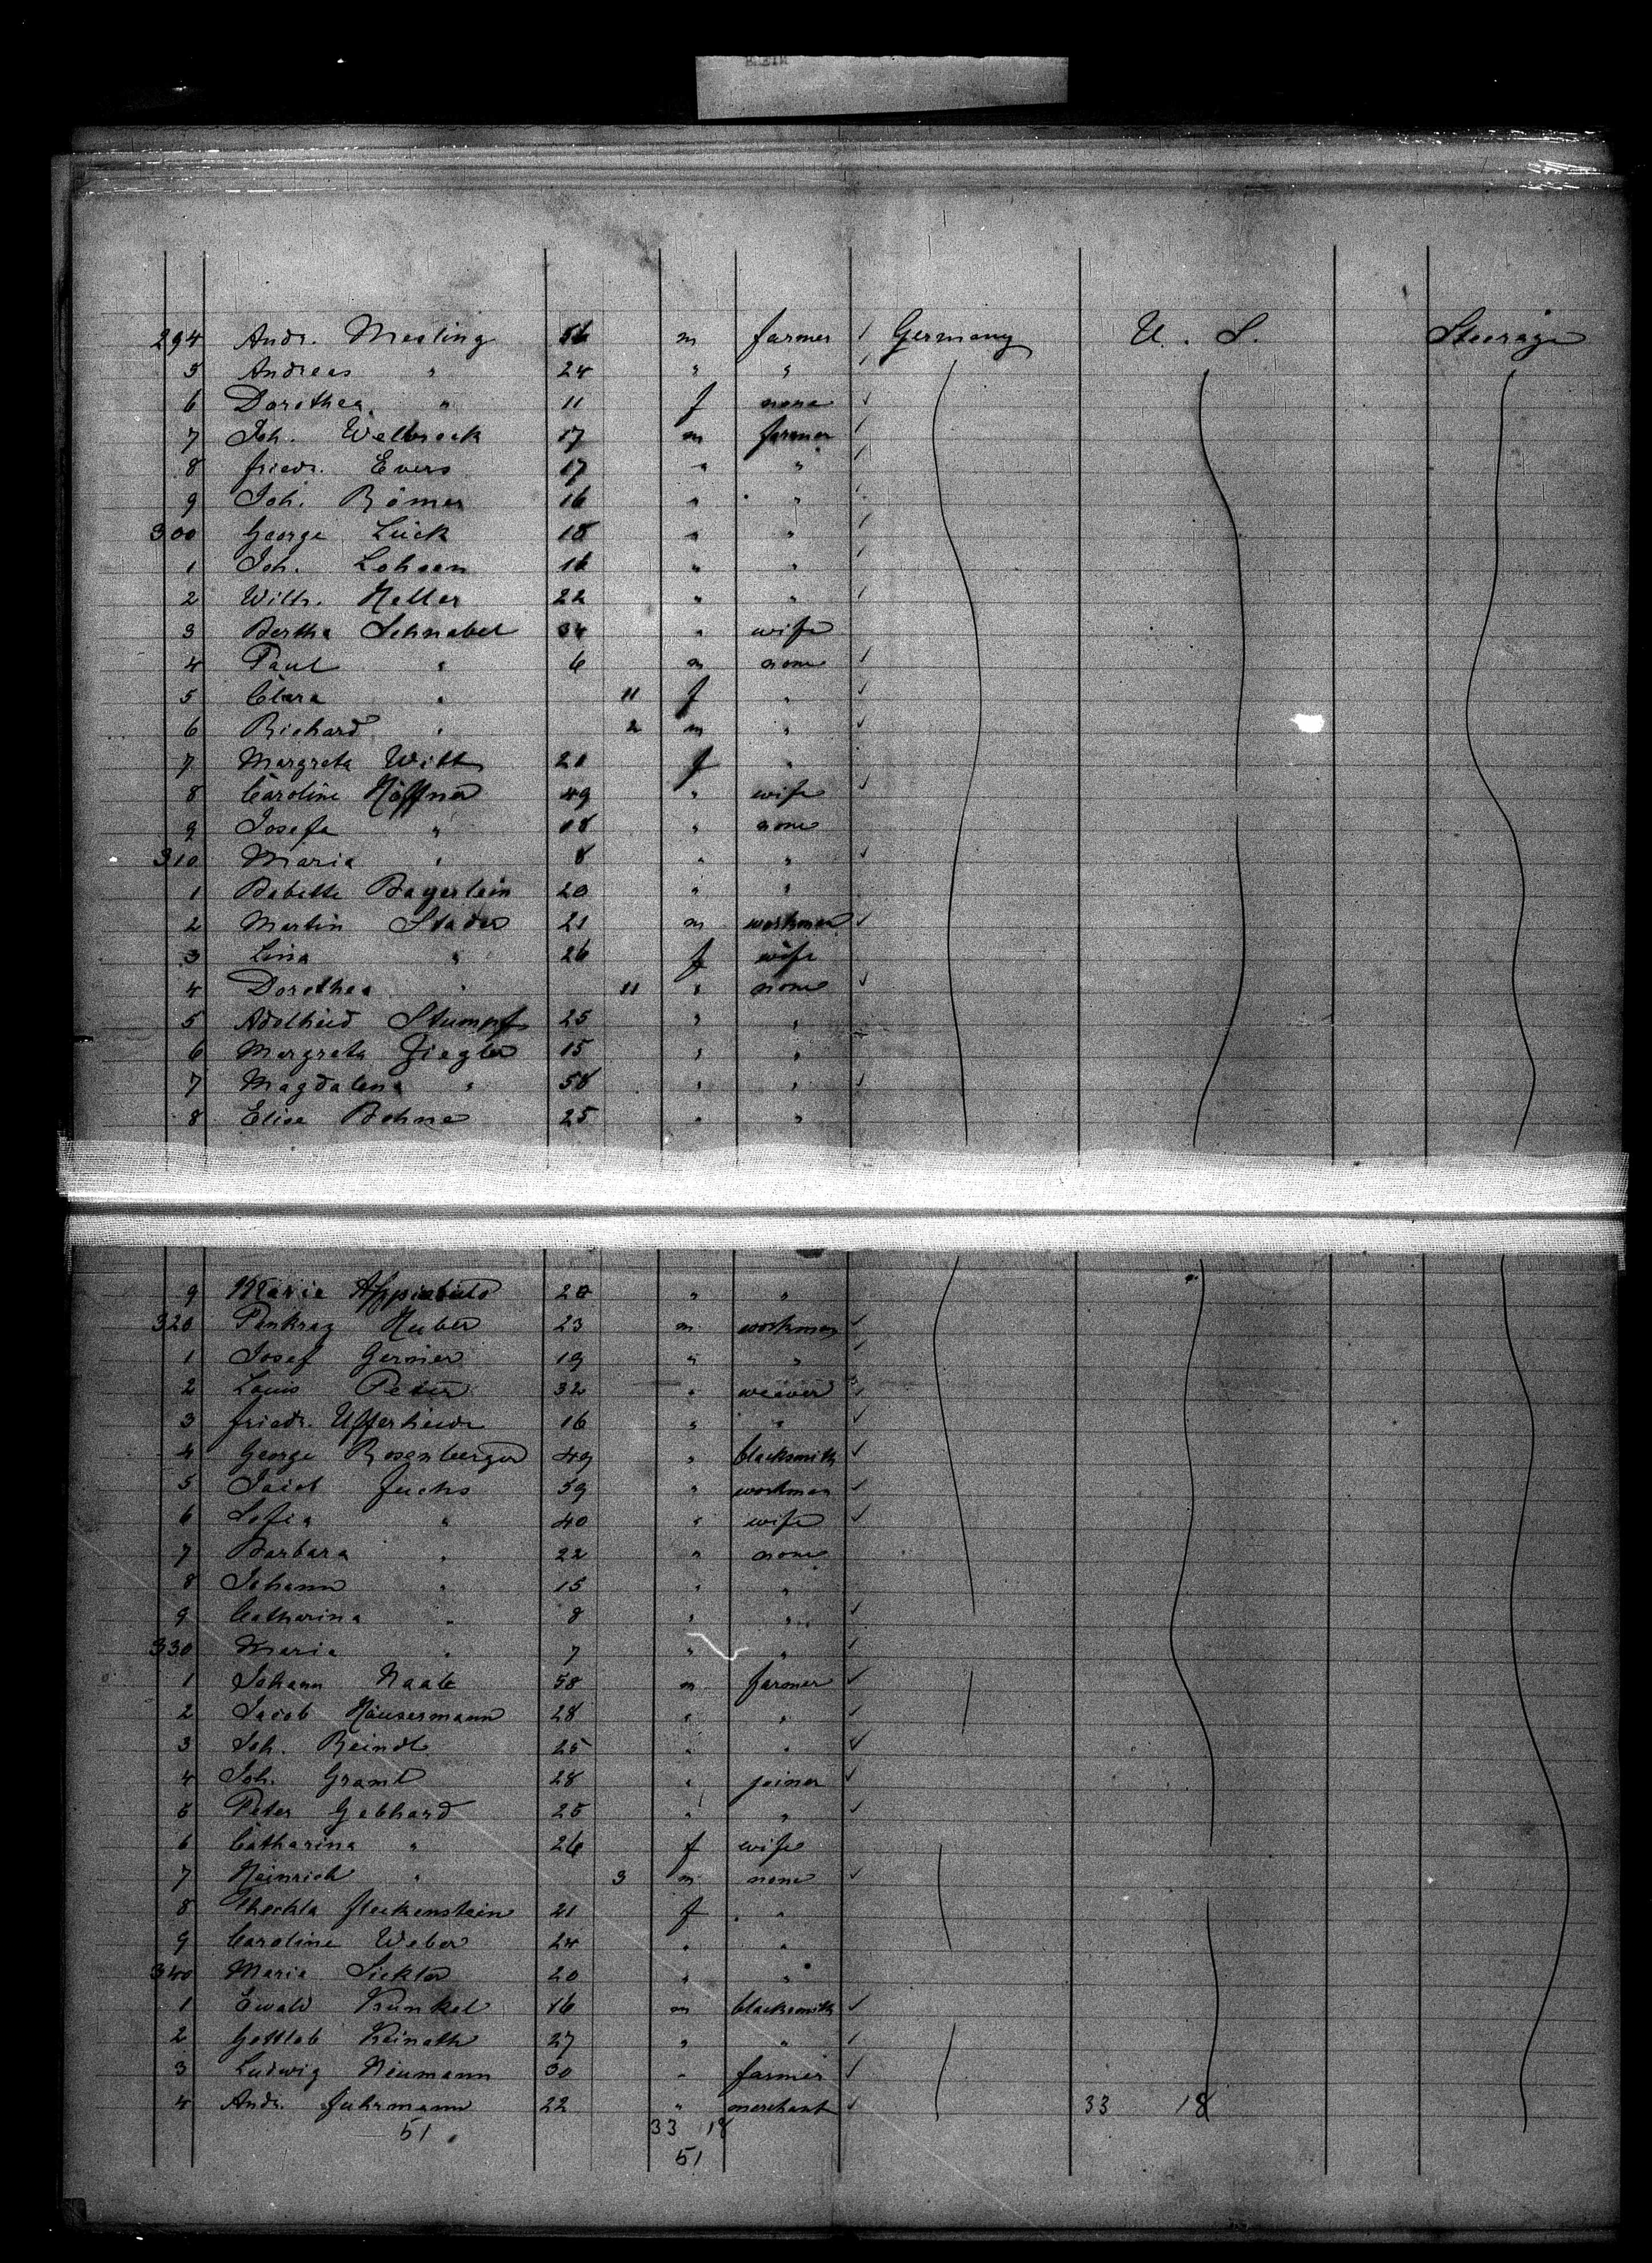 294 Andr. Mesling 56 m farmer / Germany U. S. Steerage
5 Andreas " 24 " " /
6 Dorothea " 11 f none ✓
7 Joh. Welbrock 17 m farmer /
8 Friedr. Evers 17 " " /
9 Joh. Römer 16 " "
300 George Lück 18 " " /
1 Joh. Lohsen 16 " " /
2 Wilh. Heller 22 " " /
3 Bertha Schnabel 34 " wife
4 Paul " 6 m none ✓
5 Clara " 11 f " ✓
6 Richard " 2 m " ✓
7 Margreta Witt 21 f "
8 Caroline Höffner 49 " wife ✓
9 Josefa " 18 " none
310 Maria " 8 " " ✓
1 Babette Bayerlein 20 " "
2 Martin Stader 21 m workman ✓
3 Lina " 26 f wife
4 Dorothea " 11 " none ✓
5 Adelheid Stumpf 25 " "
6 Margreta Ziegler 15 " "
7 Magdalena " 58 " " ✓
8 Elise Bohne 25 " "
9 Maria 20 " "
320 Pankraz Huber 23 m workman ✓
1 Josef Germer 19 " " /
2 Louis Peter 32 " weaver ✓
3 Friedr. Ufferheide 16 " " ✓
4 George Rosenberger 49 " blacksmith ✓
5 Jacob Fuchs 59 " workman ✓
6 Sofia " 40 " wife ✓
7 Barbara " 22 " none
8 Johann " 15 " "
9 Catharina " 8 " " ✓
330 Maria " 7 " " ✓
1 Johann Naab 58 m farmer ✓
2 Jacob Häusermann 28 " " ✓
3 Joh. Reindl 25 " " ✓
4 Joh. Graml 28 " joiner ✓
5 Peter Gebhard 25 " " ✓
6 Catharina " 26 f wife
7 Heinrich " 3 m none ✓
8 Theckla Fleckenstein 21 f "
9 Caroline Weber 24 " "
340 Maria Sickler 20 " "
1 Ewald Kunkel 16 m blacksmith ✓
2 Gottlob Keinath 27 " " ✓
3 Ludwig Neumann 30 " farmer ✓
4 Andr. Fuhrmann 22 " merchant ✓ 33 18
51 33 18
51